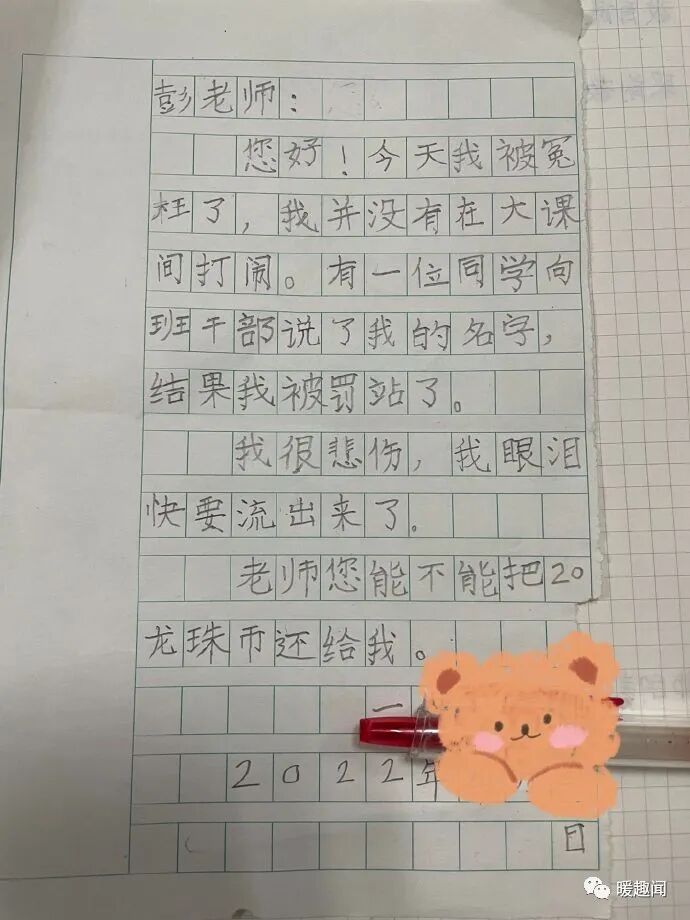 彭老师:
您好!今天我被冤
枉了,我并没有在大课
间打闹。有一位同学向
班干部说了我的名字,
结果我被罚站了。
我很悲伤,我眼泪
快要流出来了.
老师您能不能把20
龙珠币还给我。
一
2022年
日
暖趣闻